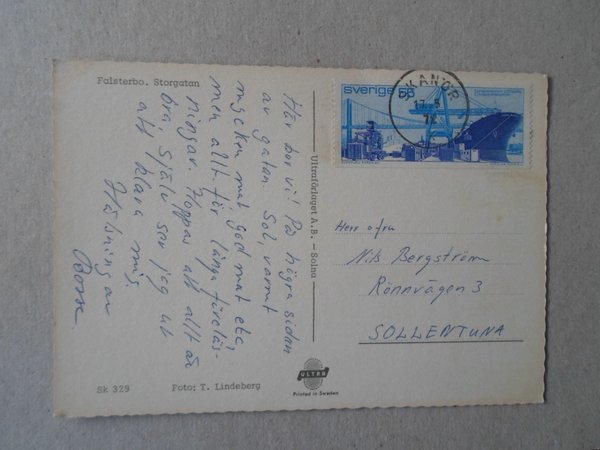 Falsterbo. Storgatan
Här bor vi! På högra sidan
av gatan. Sol, varmt
mycken mat god mat etc,
men allt för långa föreläs-
ningar. Hoppas att allt är
bra. Själv ser jag ut
att klara mig.
Hälsningar
Bosse
Ultraförlaget A.B. – Solna
sverige 55
SKANÖR
Herr o fru
Nils Bergström
Rönnvägen 3
SOLLENTUNA
Sk 329
Foto: T. Lindeberg
ULTRA
Printed in Sweden